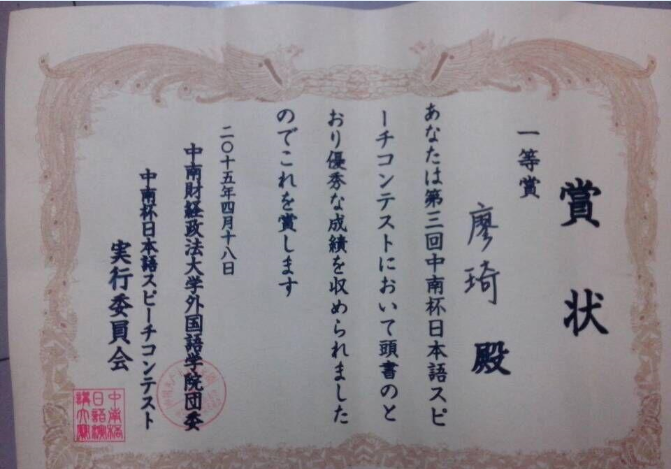 賞状
一等賞
廖琦 殿
あなたは第三回中南杯日本語スピ
ーチコンテストにおいて頭書のと
おり優秀な成績を収められました
のでこれを賞します
二〇十五年四月十八日
中南財経政法大学外国語学院団委
中南杯日本語スピーチコンテスト
実行委員会